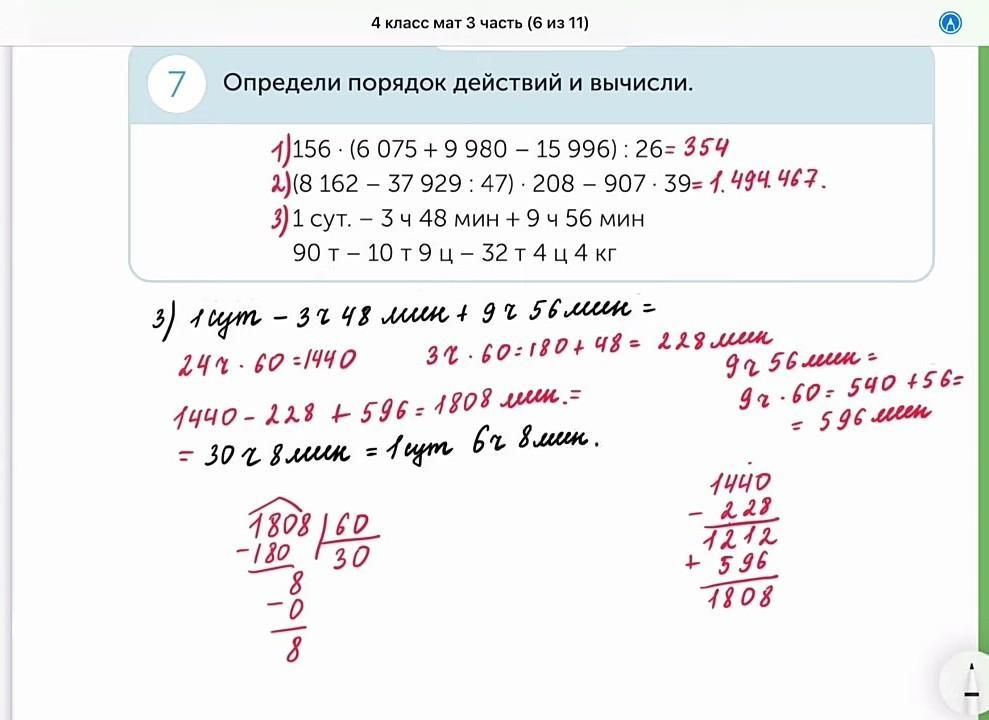 4 класс мат 3 часть (6 из 11)
7 Определи порядок действий и вычисли.
1) 156 · (6 075 + 9 980 – 15 996) : 26 = 354
2) (8 162 – 37 929 : 47) · 208 – 907 · 39 = 1.494.467.
3) 1 сут. – 3 ч 48 мин + 9 ч 56 мин
90 т – 10 т 9 ц – 32 т 4 ц 4 кг
3) 1 сут – 3 ч 48 мин + 9 ч 56 мин =
24 ч · 60 = 1440
3 ч · 60 = 180 + 48 = 228 мин
9 ч 56 мин =
9 ч · 60 = 540 + 56 =
= 596 мин
1440 – 228 + 596 = 1808 мин. =
= 30 ч 8 мин = 1 сут 6 ч 8 мин.
1808 | 60
– 180 30
8
– 0
8
1440
– 228
1212
+ 596
1808